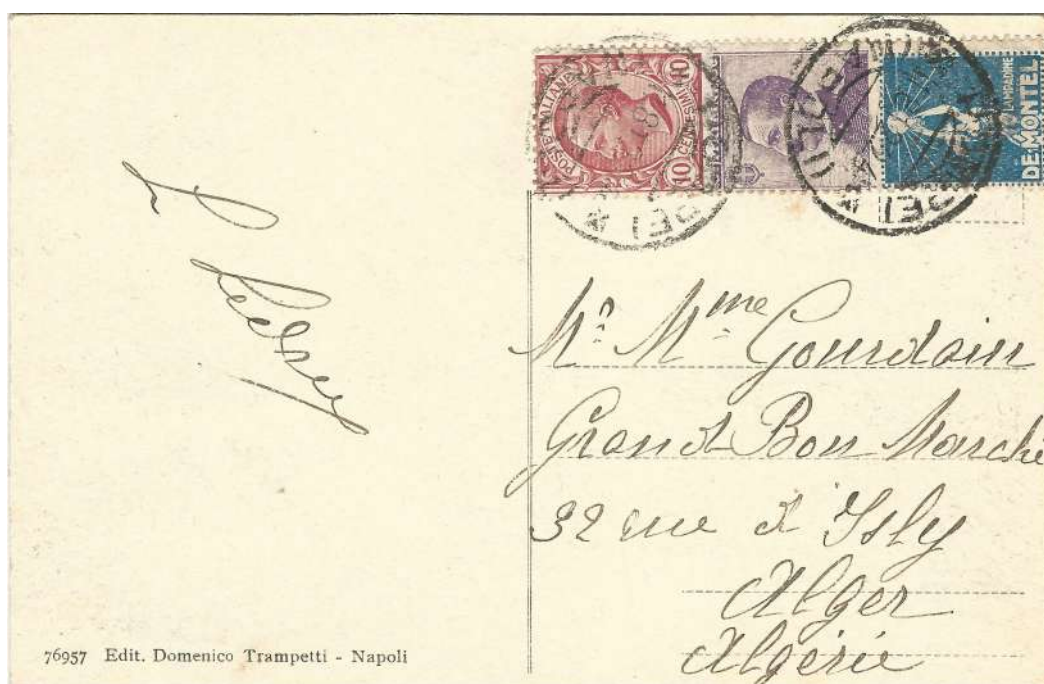 POSTE ITALIANE
CENTESIMI 10
10
LAMPADINE
DE MONTEL
Mr Mme Gourdain
Grand Bon Marché
32 rue d'Isly
Alger
Algérie
76957 Edit. Domenico Trampetti - Napoli